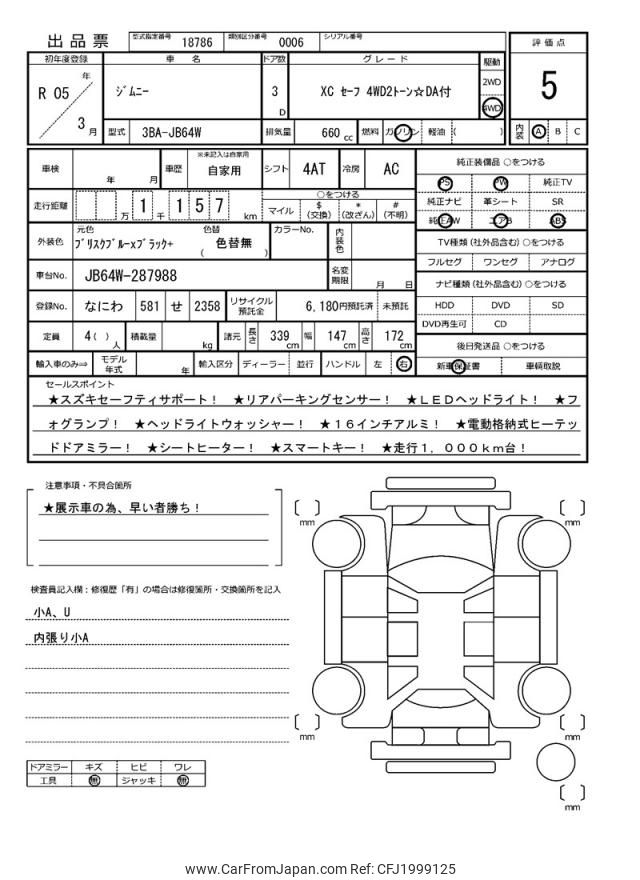 出品票 型式指定番号 18786 類別区分番号 0006 シリアル番号
評価点
5
内装 A B C
初年度登録 車名 ドア数 グレード 駆動
R 05 年 3 月
ジムニー 3 D XC セーフ 4WD2トーン☆DA付 2WD 4WD
型式 3BA-JB64W 排気量 660 cc 燃料 ガソリン 軽油 ( )
車検 年 月 車歴 ※未記入は自家用 自家用 シフト 4AT 冷房 AC
走行距離 万 1 千 1 5 7 km ○をつける
マイル $ (交換) * (改ざん) # (不明)
外装色 元色 ブリスクブルーxブラック+ 色替 ( 色替無 ) カラーNo. 内装色
車台No. JB64W-287988 名変期限 月 日
登録No. なにわ 581 せ 2358 リサイクル預託金 6,180円預託済 未預託
定員 4( ) 人 積載量 kg 諸元 長さ 339 cm 幅 147 cm 高さ 172 cm
輸入車のみ⇒ モデル年式 年 輸入区分 ディーラー 並行 ハンドル 左 右
純正装備品 ○をつける
PS PW 純正TV
純正ナビ 革シート SR
純正AW エアB ABS
TV種類 (社外品含む) ○をつける
フルセグ ワンセグ アナログ
ナビ種類 (社外品含む) ○をつける
HDD DVD SD
DVD再生可 CD
後日発送品 ○をつける
新車保証書 車輌取説
セールスポイント
★スズキセーフティサポート！ ★リアパーキングセンサー！ ★ＬＥＤヘッドライト！ ★フ
ォグランプ！ ★ヘッドライトウォッシャー！ ★１６インチアルミ！ ★電動格納式ヒーテッ
ドドアミラー！ ★シートヒーター！ ★スマートキー！ ★走行１，０００ｋｍ台！
注意事項・不具合箇所
★展示車の為、早い者勝ち！
検査員記入欄：修復歴「有」の場合は修復箇所・交換箇所を記入
小A、U
内張り小A
ドアミラー キズ ヒビ ワレ
工具 無 ジャッキ 無
mm
mm
mm
mm
mm
www.CarFromJapan.com Ref: CFJ1999125